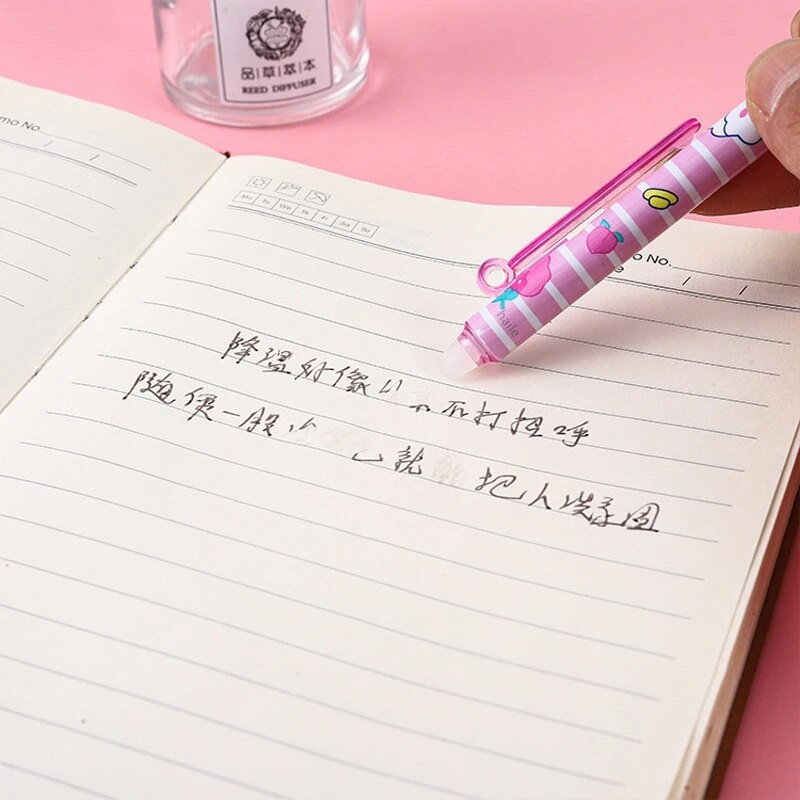 品|草|萃|本
REED DIFFUSER
mo No.
Mo Tu We Th Fr Sa Su
o No.
e
haile
降温好像从 不打招呼
随便一股 就 把人